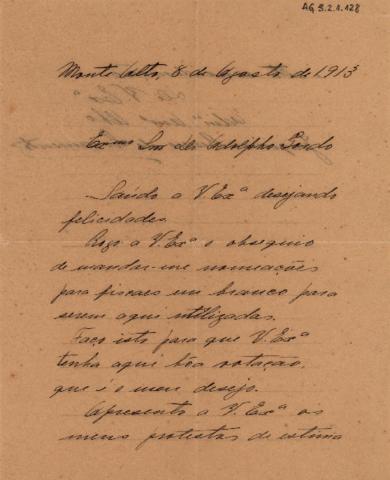 AG 9.2.1.128
Monte Alto, 8 de Agosto de 1913
Exmo Snr Dr Adolpho Gordo
Saúdo a V. Exª desejando
felicidades.
Rogo a V. Exª o obsequio
de mandar-me nomeações
para fiscaes em branco para
serem aqui utilizadas.
Faço isto para que V. Exª
tenha aqui bôa votação,
que é o meu desejo.
Apresento a V. Exª os
meus protestos de estima